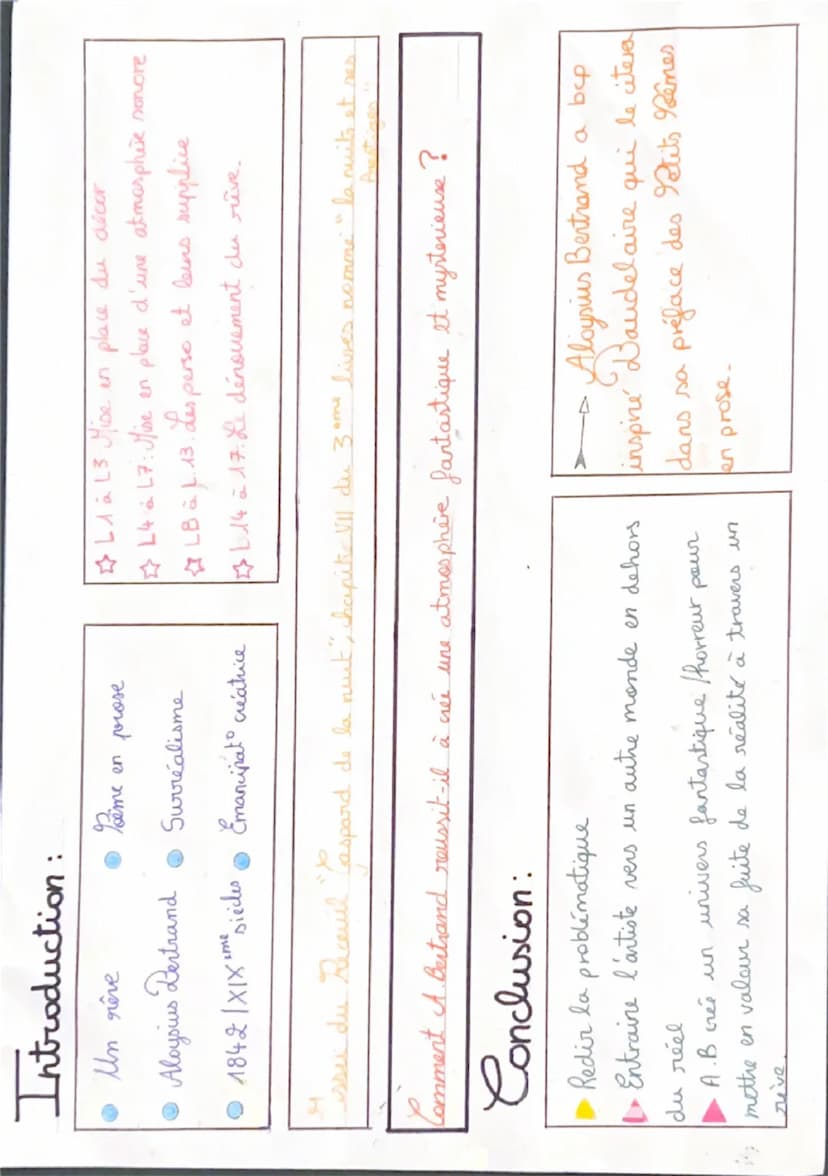 Introduction :
Un rêve
Aloysius Bertrand
1842 / XIXème siècles
Poème en prose
Surréalisme
Émancipat° créatrice
L1 à L3 Mise en place du décor
L4 à L7 : Mise en place d'une atmosphère sonore
L8 à L13. Les perso et leurs supplice
L14 à 17 : Le dénouement du rêve.
issu du Receuil "Gaspard de la nuit", chapitre VII du 3ème livres nommé "la nuits et ses
Prestiges"
Comment A.Bertrand reussit-il à crée une atmosphère fantastique et mysterieuse ?
Conclusion :
Redir la problématique
Entraine l'artiste vers un autre monde en dehors
du réel
A.B crée un univers fantastique / horreur pour
mettre en valeur sa fuite de la réalité à travers un
rêve.
Aloysius Bertrand a bcp
inspiré Baudelaire qui le citera
dans sa préface des Petits Poèmes
en prose.